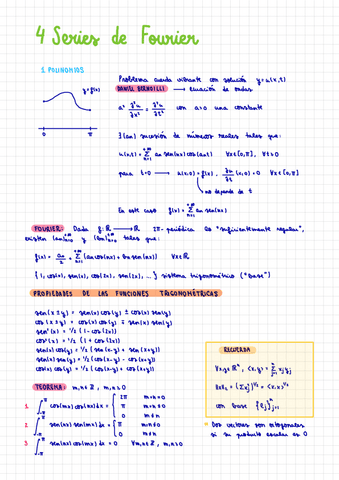 4 Series de Fourier
1. POLINOMIOS
Problema cuerda vibrante con solución y=u(x,t)
y=f(x)
DANIEL BERNOILLI → ecuación de ondas
a² ∂²u/∂x² = ∂²u/∂t² con a>0 una constante
0 π
∃(an) sucesión de números reales tales que:
u(x,t) = Σ_{n=1}^{+∞} an sen(nx) cos(ant) ∀x∈[0,π], ∀t>0
para t=0 → u(x,0)=f(x), ∂u/∂t (x,0)=0 ∀x∈[0,π]
no depende de t
En este caso f(x) = Σ_{n=1}^{+∞} an sen(nx)
FOURIER Dada f:ℝ→ℝ 2π-periódica lo "suficientemente regular",
existen (an)_{n=0}^{+∞} y (bn)_{n=1}^{+∞} tales que:
f(x) = a₀/2 + Σ_{n=1}^{+∞} (an cos(nx) + bn sen(nx)) ∀x∈ℝ
{1, cos(x), sen(x), cos(2x), sen(2x), ...} sistema trigonométrico ("base")
PROPIEDADES DE LAS FUNCIONES TRIGONOMÉTRICAS
sen(x±y) = sen(x)cos(y) ± cos(x)sen(y)
cos(x±y) = cos(x)cos(y) ∓ sen(x)sen(y)
sen²(x) = 1/2 (1-cos(2x))
cos²(x) = 1/2 (1+cos(2x))
sen(x)cos(y) = 1/2 (sen(x-y) + sen(x+y))
sen(x)sen(y) = 1/2 (cos(x-y) - cos(x+y))
cos(x)cos(y) = 1/2 (cos(x-y) + cos(x+y))
RECUERDA
∀x,y∈ℝⁿ, <x,y> = Σ_{j=1}^{n} xj yj
‖x‖₂ = (Σxj²)^{1/2} = <x,x>^{1/2}
con base {ej}_{j=1}^{n}
TEOREMA m,n∈ℤ, m,n≥0
1 ∫_{-π}^{π} cos(mx)cos(nx)dx = { 2π m=n=0
π m=n≠0
0 m≠n
2 ∫_{-π}^{π} sen(nx)sen(mx)dx = { 0 m=n=0
π m=n≠0
0 m≠n
3 ∫_{-π}^{π} sen(nx)cos(mx)dx = 0 ∀m,n∈ℤ, m,n≥0
Dos vectores son ortogonales
si su producto escalar es 0